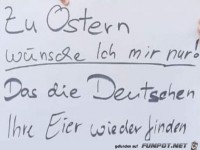 Zu Ostern
wünsche Ich mir nur!
Das die Deutschen
Ihre Eier wieder finden
gefunden auf FUNPOT.NET